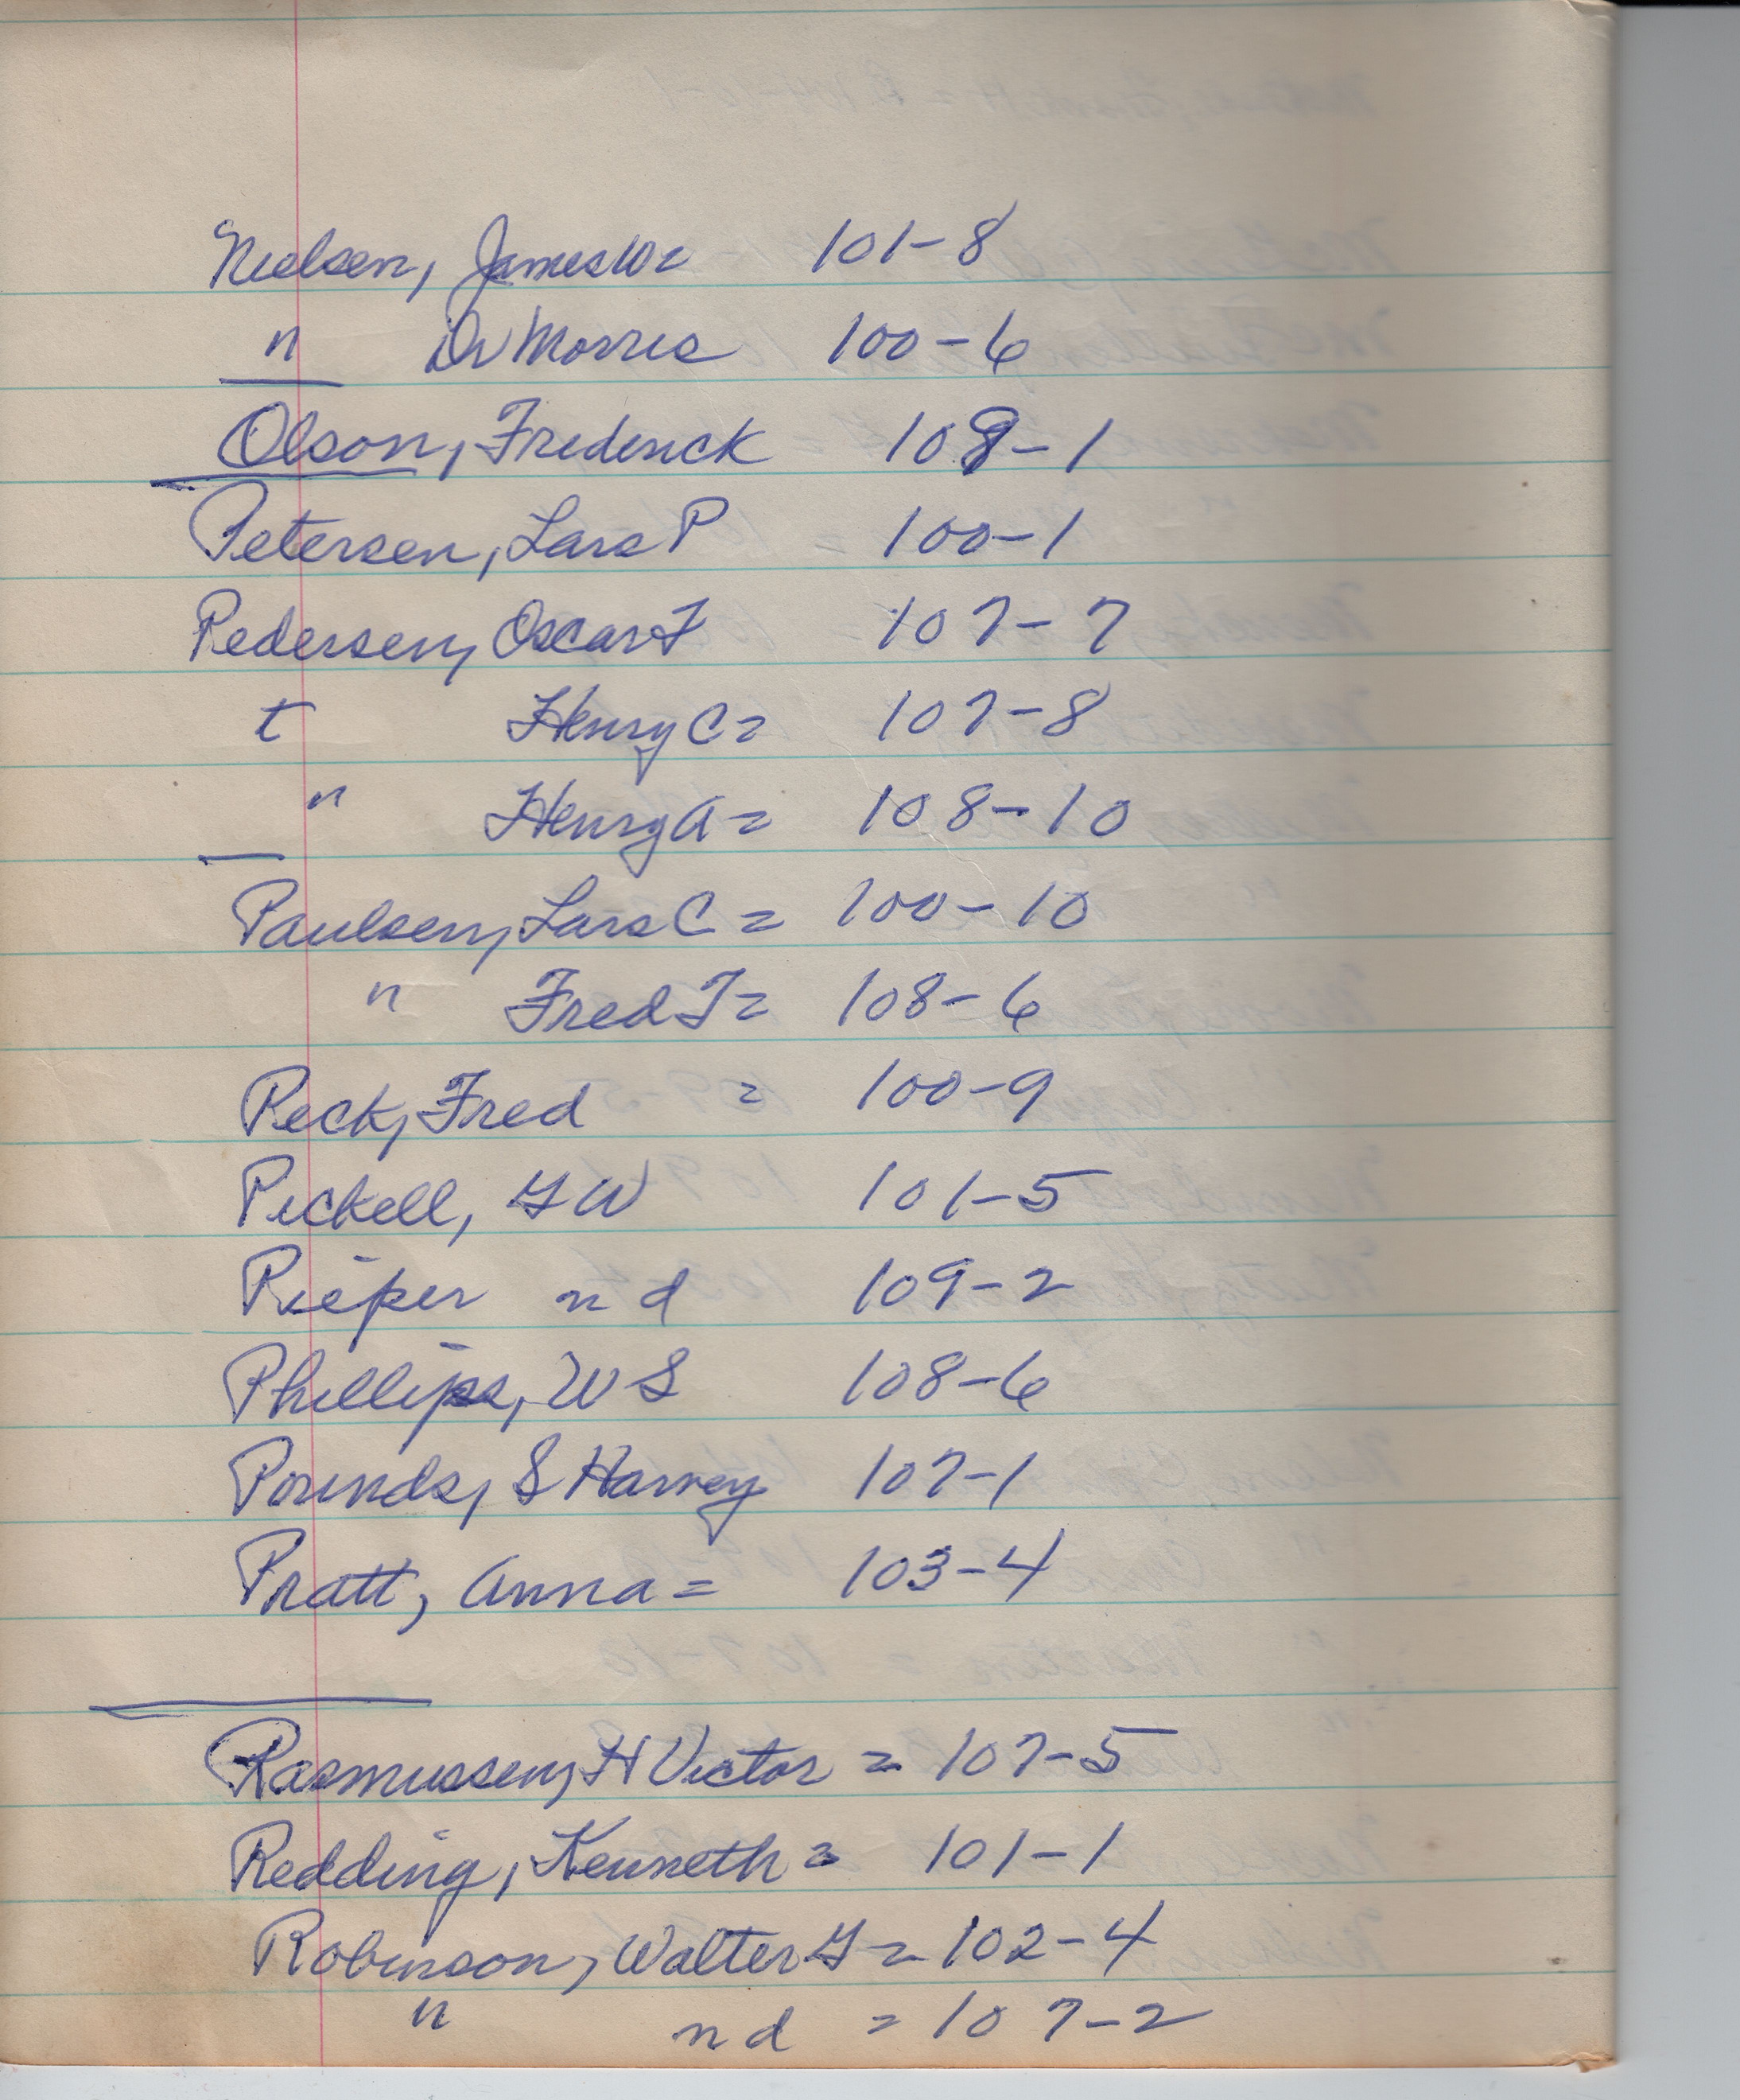 Nielsen, James W = 101-8
" Dr Morris 100-6
Olson, Frederick 108-1
Petersen, Lars P 100-1
Pedersen, Oscar F 107-7
t Henry C = 107-8
" Henry A = 108-10
Paulsen, Lars C = 100-10
" Fred T = 108-6
Peck, Fred = 100-9
Pickell, G W 101-5
Pieper n d 109-2
Phillips, W S 108-6
Pounds, S Harvey 107-1
Pratt, Anna = 103-4
Rasmussen, H Victor = 107-5
Redding, Kenneth = 101-1
Robinson, Walter G = 102-4
" n d = 107-2